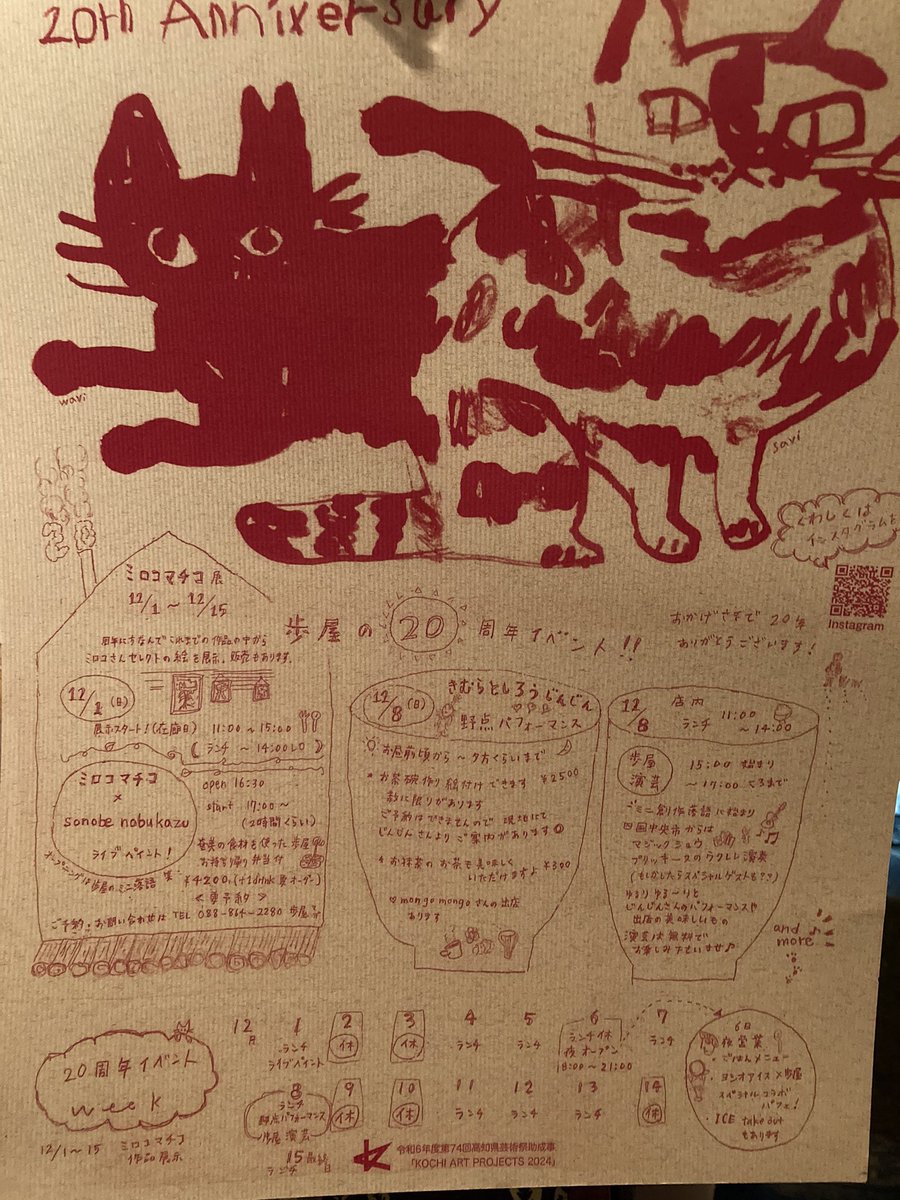 20th Anniversary
wavi
savi
くわしくは
インスタグラムを
Instagram
ミロコマチコ展
12/1～12/15
周年にちなんでこれまでの作品の中から
ミロコさんセレクトの絵を展示。販売もあります。
歩屋の20周年イベント!!
おかげさまで20年
ありがとうございます!
12/1(日)
展示スタート!(在廊日) 11:00～15:00
(ランチ ～14:00LO)
ミロコマチコ
×
sonobe nobukazu
ライブペイント!
open 16:30
start 17:00～
(2時間くらい)
奄美の食材を使った歩屋の
お持ち帰り弁当付
¥4200(+1drink要オーダー)
<要予約>
オープニングは歩屋のミニ落語
ご予約・お問い合わせは TEL 088-864-2280 歩屋まで
12/8(日)
きむらとしろうじんじん
野点パフォーマンス
お昼前頃から～夕方くらいまで
お茶碗作り絵付けできます ¥2500
数に限りがあります
ご予約はできませんので 現地にて
じんじんさんよりご案内があります
お抹茶のお茶も美味しく
いただけますよ ¥300
♡mongo mongoさんの出店
あります
12/8
店内
ランチ 11:00
～14:00
歩屋
演芸
15:00 始まり
～17:00くろまで
ミニ創作落語に始まり
四国中央市からは
マジックショウ
ブリッキースのウクレレ演奏
(もしかしたらスペシャルゲストも??)
ゆるりゆる～りと
じんじんさんのパフォーマンスや
出店の美味しいもの
演芸は無料で
お楽しみ下さいませ♪
and
more
20周年イベント
week
12/1～15 ミロコマチコ
作品展示
12月
1
ランチ
ライブペイント
2
休
3
休
4
ランチ
5
ランチ
6
ランチ休
夜オープン
18:00～21:00
7
ランチ
8
ランチ
野点パフォーマンス
歩屋演芸
9
休
10
休
11
ランチ
12
ランチ
13
ランチ
14
休
15 最終日
ランチ
6日
夜営業
・ごはんメニュー
・ヨシオアイス×歩屋
スペシャルコラボ
パフェ!
・ICE take out
もあります
令和6年度第74回高知県芸術祭助成事
「KOCHI ART PROJECTS 2024」